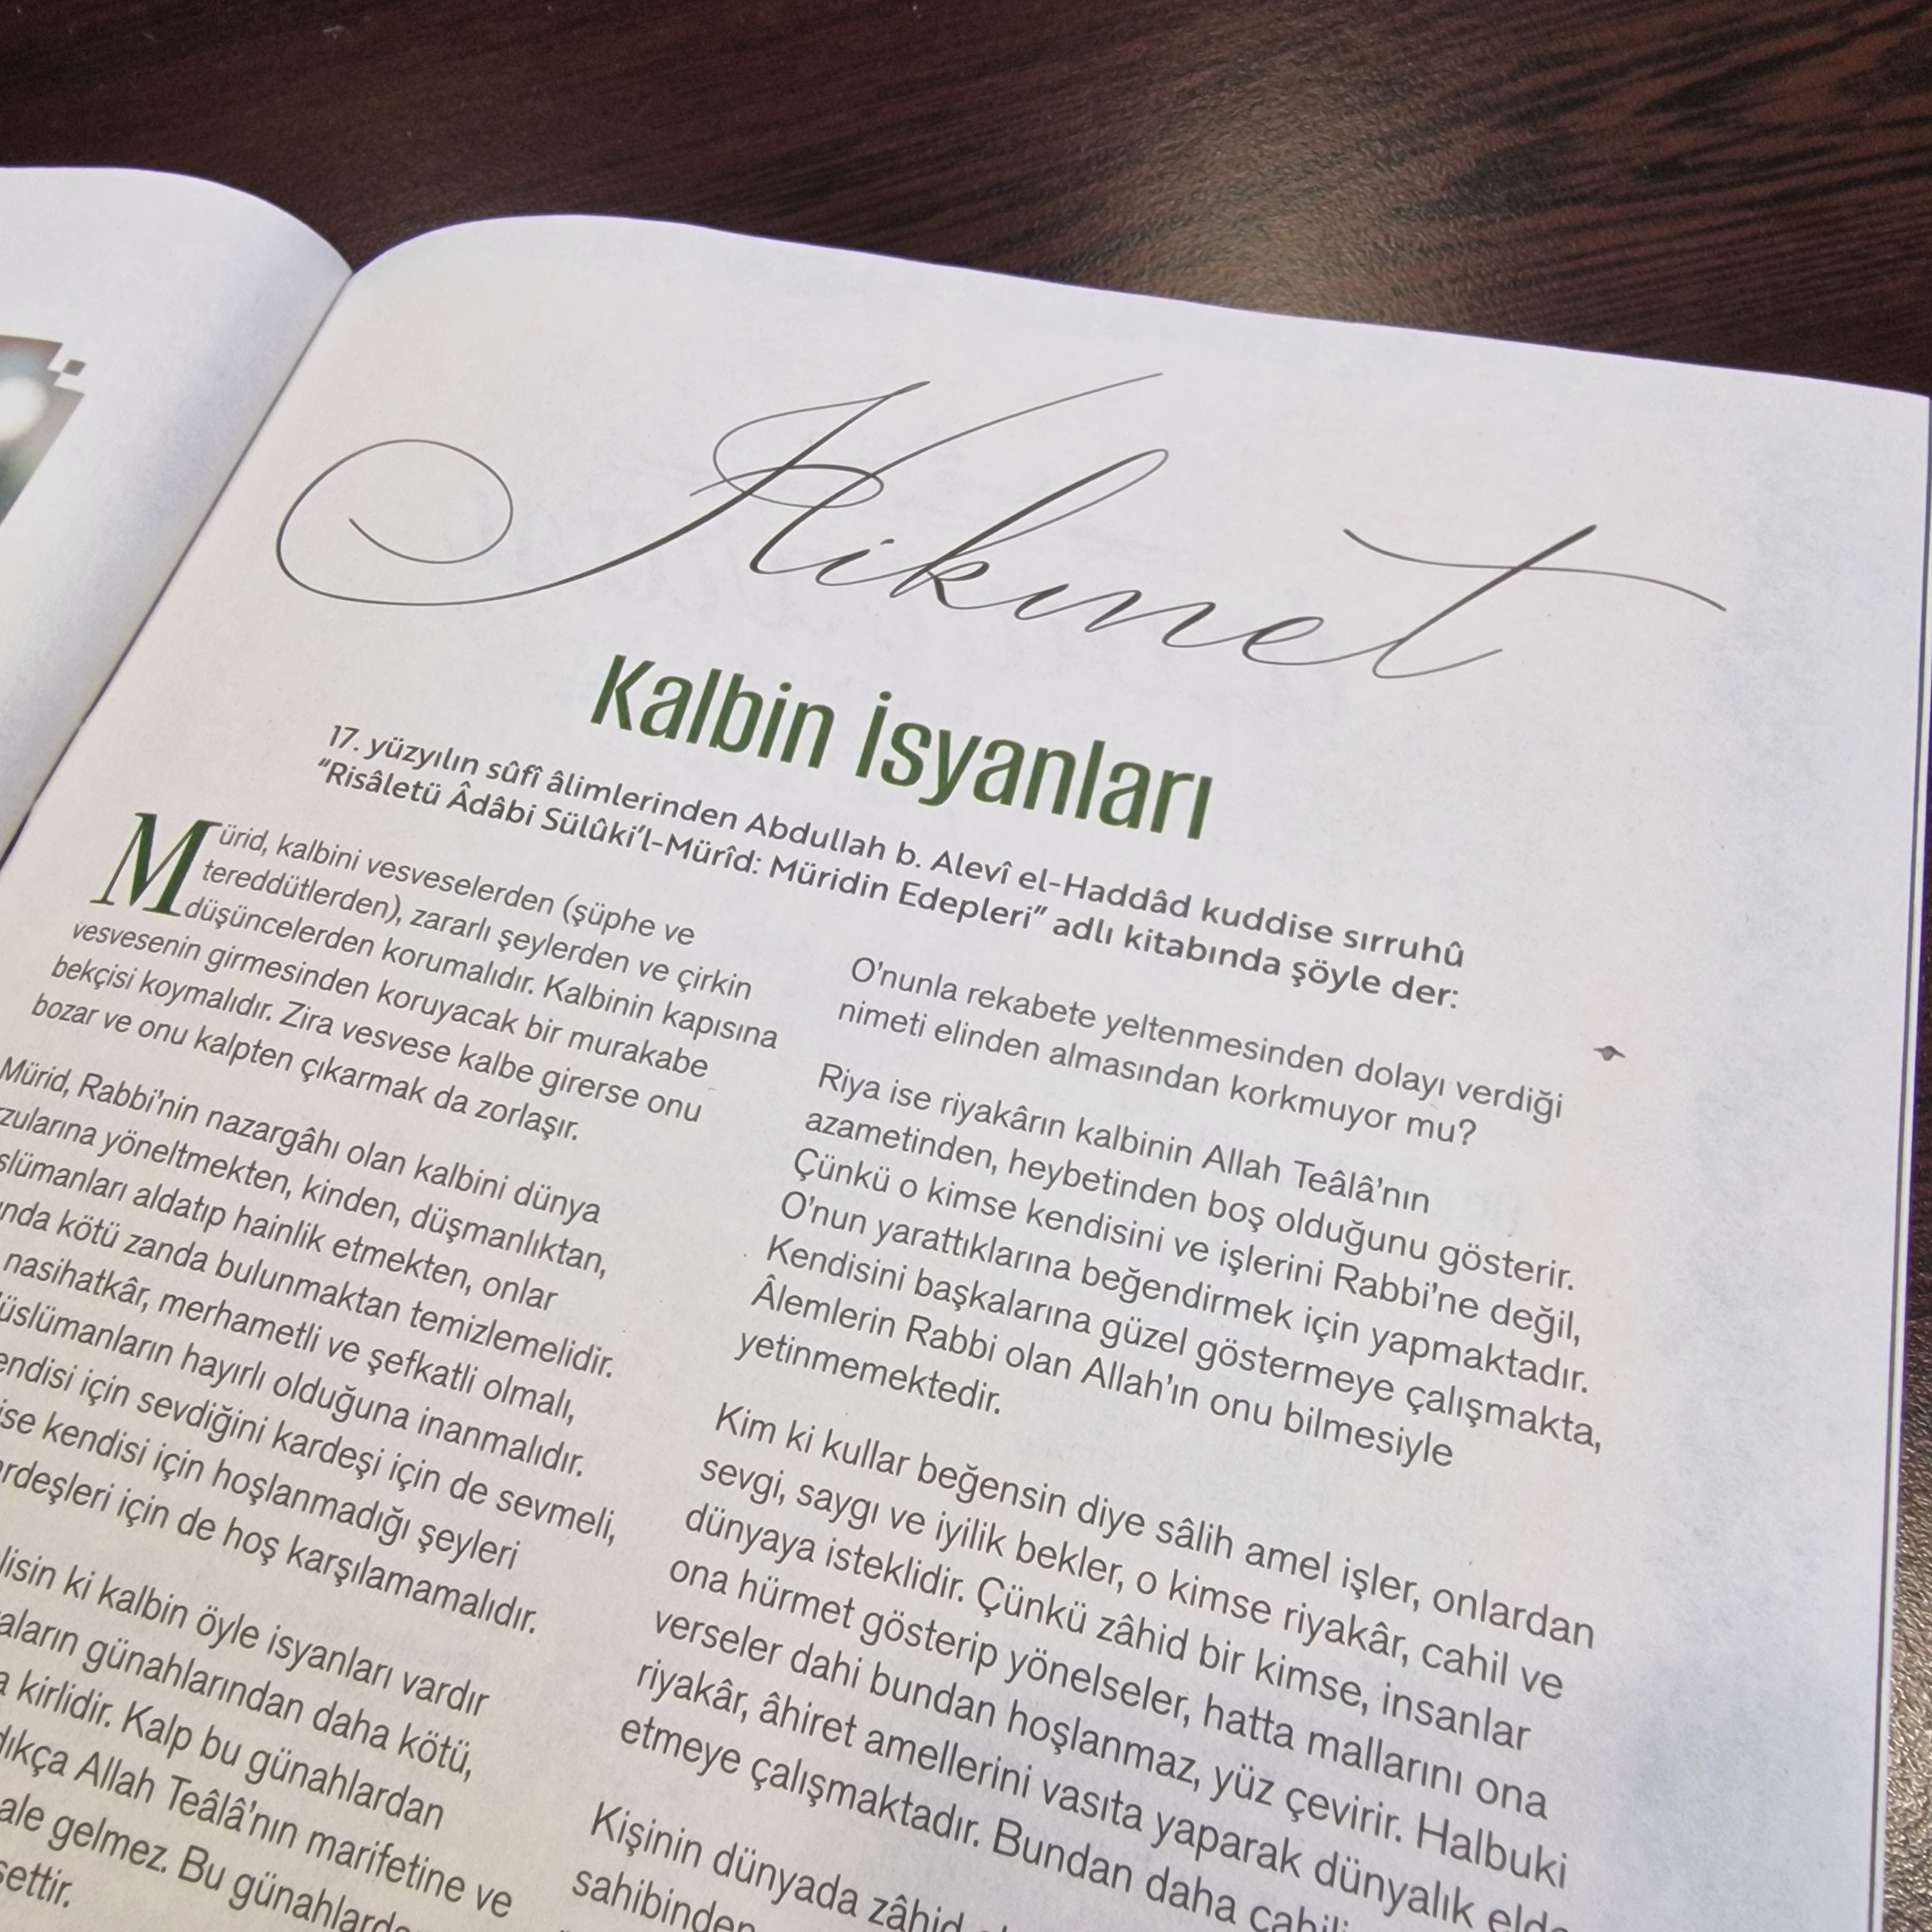 Hikmet
Kalbin İsyanları
17. yüzyılın sûfî âlimlerinden Abdullah b. Alevî el-Haddâd kuddise sırruhû
“Risâletü Âdâbi Sülûki’l-Mürîd: Müridin Edepleri” adlı kitabında şöyle der:
Mürid, kalbini vesveselerden (şüphe ve
tereddütlerden), zararlı şeylerden ve çirkin
düşüncelerden korumalıdır. Kalbinin kapısına
vesvesenin girmesinden koruyacak bir murakabe
bekçisi koymalıdır. Zira vesvese kalbe girerse onu
bozar ve onu kalpten çıkarmak da zorlaşır.
Mürid, Rabbi’nin nazargâhı olan kalbini dünya
yöneltmekten, kinden, düşmanlıktan,
aldatıp hainlik etmekten, onlar
kötü zanda bulunmaktan temizlemelidir.
nasihatkâr, merhametli ve şefkatli olmalı,
hayırlı olduğuna inanmalıdır.
için sevdiğini kardeşi için de sevmeli,
kendisi için hoşlanmadığı şeyleri
için de hoş karşılamamalıdır.
ki kalbin öyle isyanları vardır
günahlarından daha kötü,
kirlidir. Kalp bu günahlardan
Allah Teâlâ’nın marifetine ve
gelmez. Bu
O’nunla rekabete yeltenmesinden dolayı verdiği
nimeti elinden almasından korkmuyor mu?
Riya ise riyakârın kalbinin Allah Teâlâ’nın
azametinden, heybetinden boş olduğunu gösterir.
Çünkü o kimse kendisini ve işlerini Rabbi’ne değil,
O’nun yarattıklarına beğendirmek için yapmaktadır.
Kendisini başkalarına güzel göstermeye çalışmakta,
Âlemlerin Rabbi olan Allah’ın onu bilmesiyle
yetinmemektedir.
Kim ki kullar beğensin diye sâlih amel işler, onlardan
sevgi, saygı ve iyilik bekler, o kimse riyakâr, cahil ve
dünyaya isteklidir. Çünkü zâhid bir kimse, insanlar
ona hürmet gösterip yönelseler, hatta mallarını ona
verseler dahi bundan hoşlanmaz, yüz çevirir. Halbuki
riyakâr, âhiret amellerini vasıta yaparak dünyalık
etmeye çalışmaktadır. Bundan daha
Kişinin dünyada zâhid
sahibinden